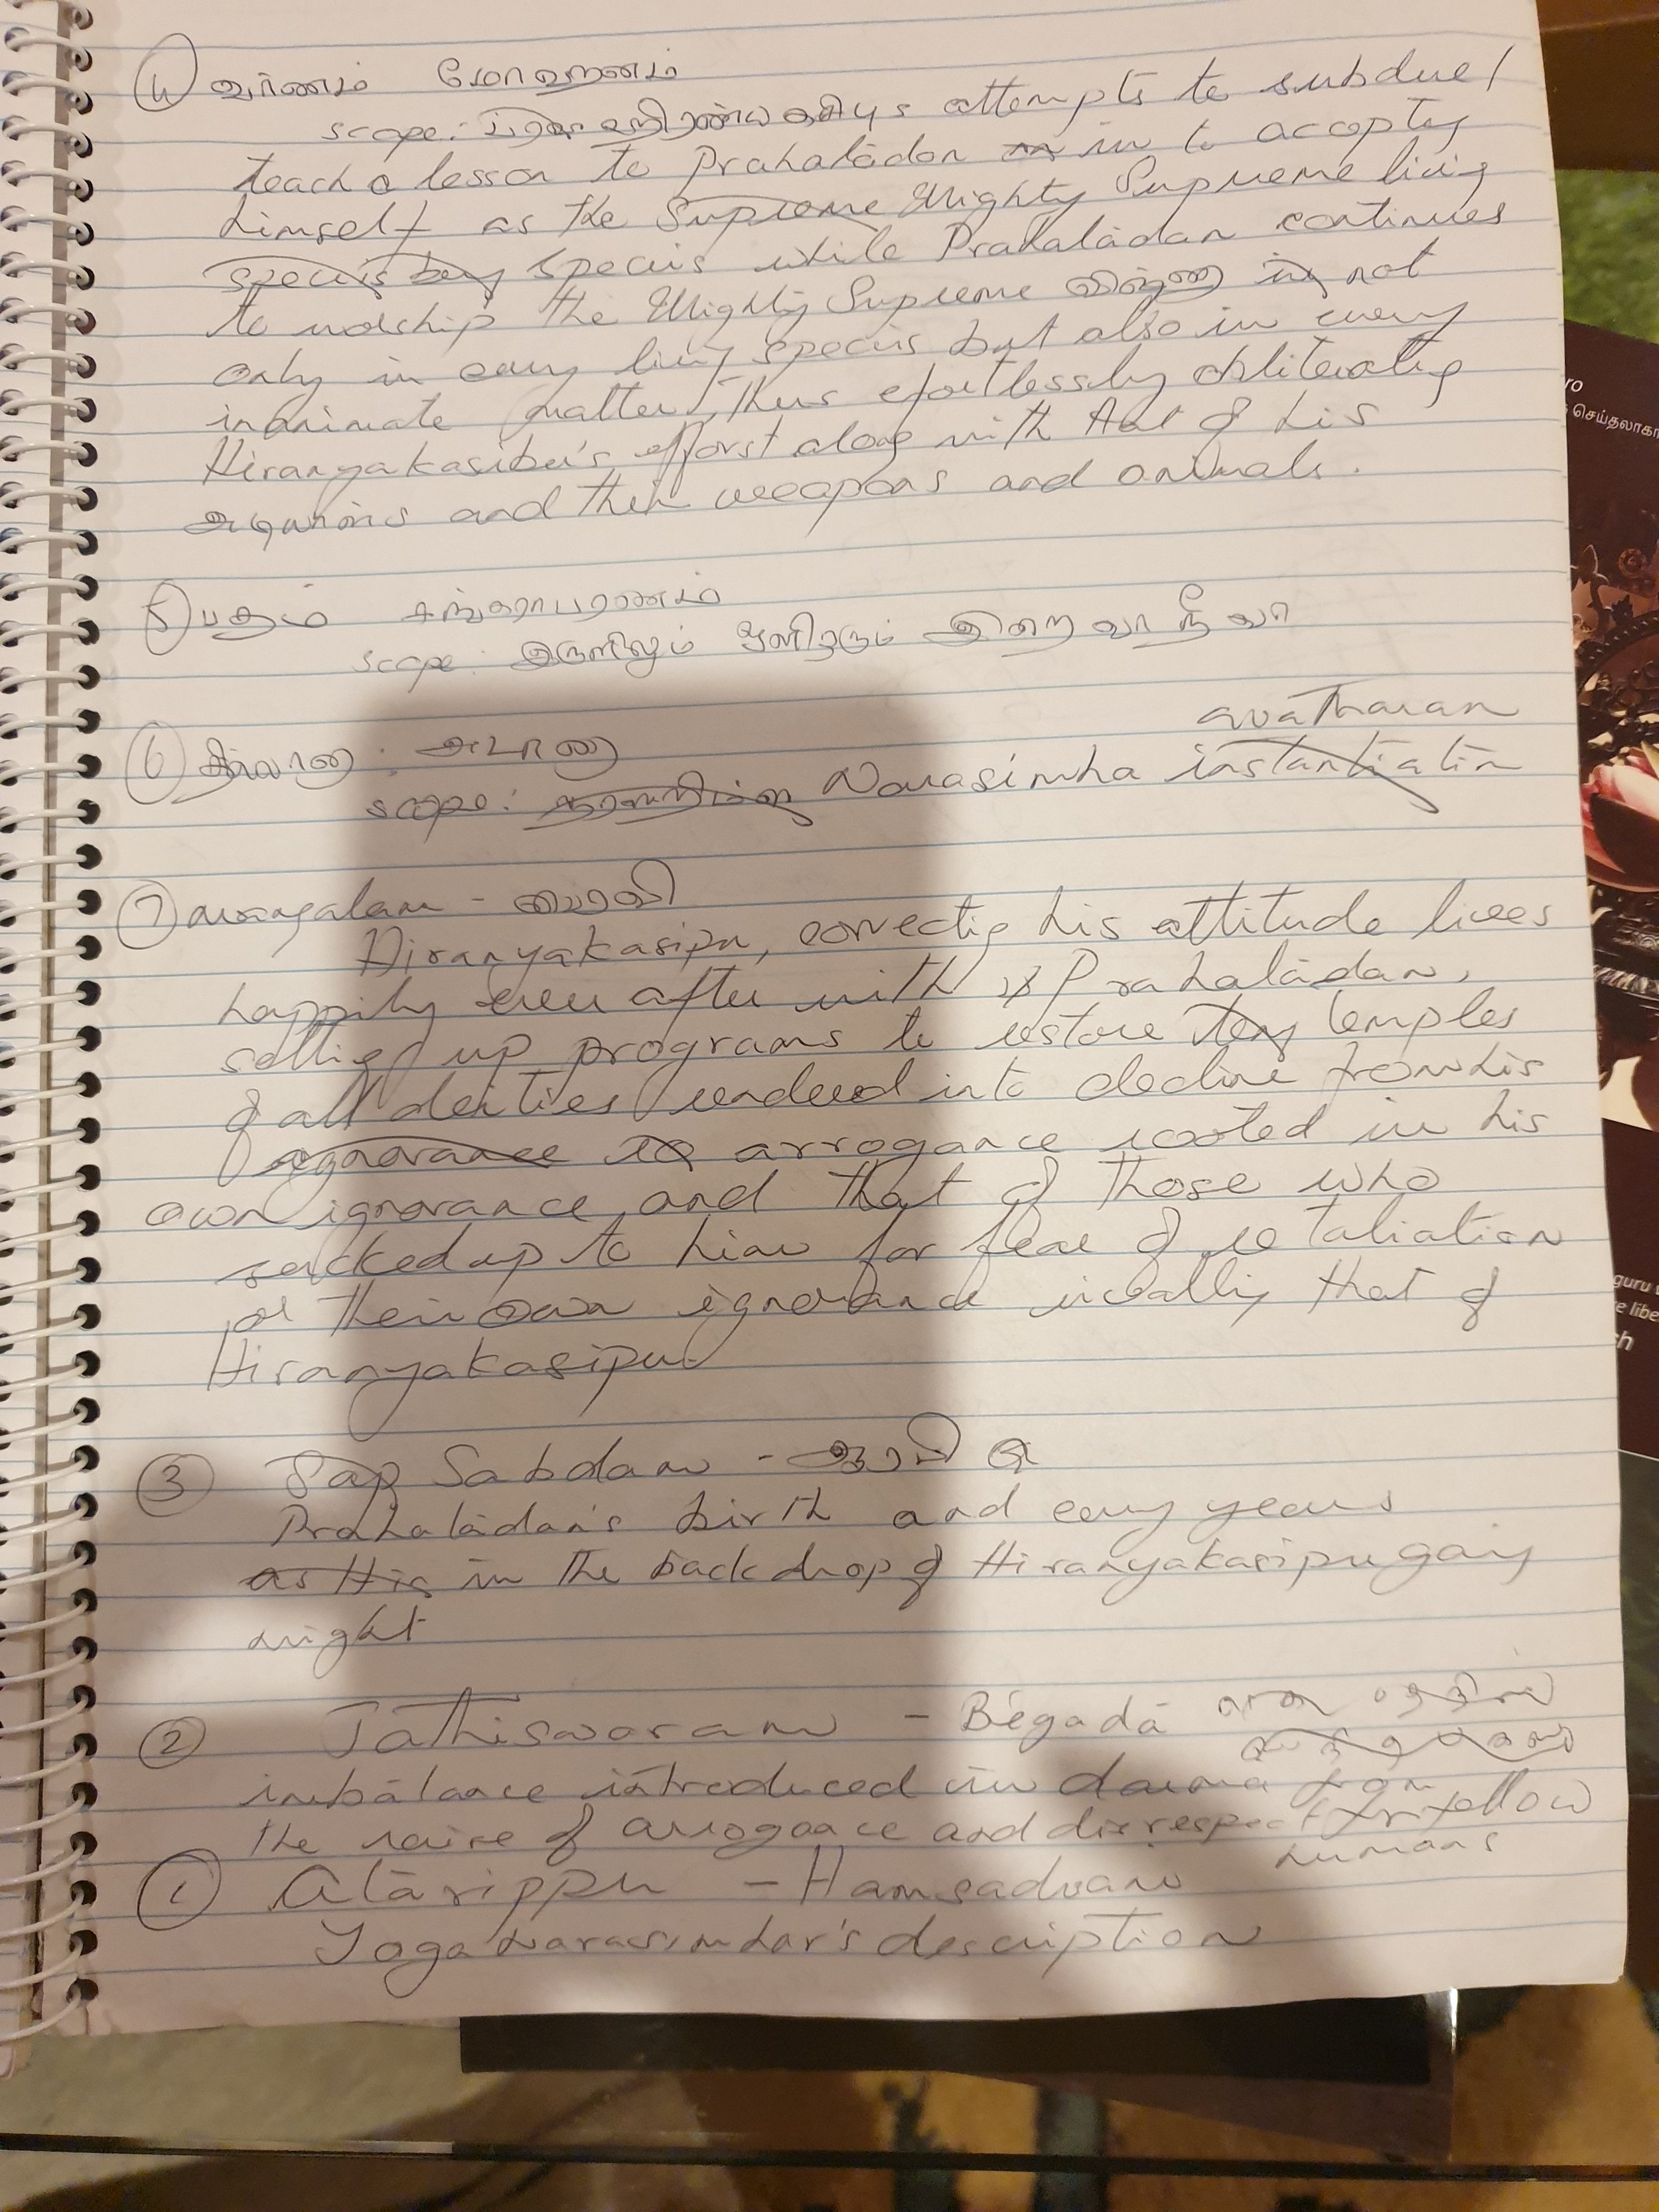 4) வர்ணம் மோஹனம்
scope: ஹிரண்யகசிபு's attempts to subdue /
teach a lesson to Prahalādan in to accepting
himself as the Mighty Supreme living
species while Prahalādan continues
to worship the Mighty Supreme not
only in every living species but also in every
inanimate matter, thus effortlessly obliterating
Hiranyakasibu's efforst along with that of his
அடியார்s and their weapons and animals.
5) பதம் சங்கராபரணம்
scope: இருளிலும் ஒளிதரும் இறைவா நீ வா
6) தில்லானா: அடாணா
avatharam
scope: Narasimha
7) mangalam - பைரவி
Hiranyakasipu, correcting his attitude lives
happily ever after with Prahalādan,
setting up programs to restore temples
of all deities rendered into decline from his
arrogance rooted in his
own ignorance and that of those who
sucked up to him for fear of retaliation
or their own ignorance
that of
Hiranyakasipu.
3 Sabdam - ஆரபி
Prahalādan's birth and early years
in the backdrop of Hiranyakasipu gaing
might
2 Jathiswaram - Bēgadā
imbālance introduced in darma from
the raise of arrogance and disrespect for fellow
humans
1 Alārippu - Hamsadvani
Yoga Narasimhar's description
செய்தலாகா
guru
e libe
sh